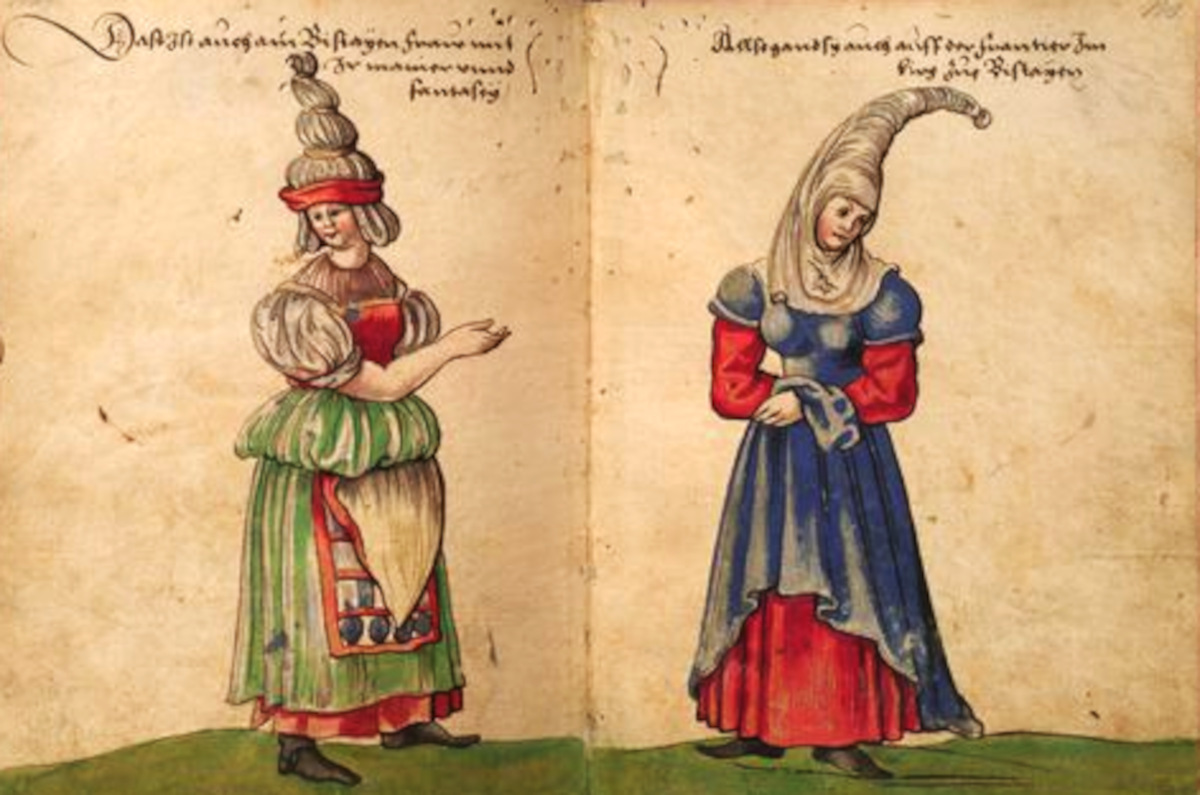 Dast Ist auch ain Biskayen fraw mit
Ir manier vnnd
fantasey
Also gand sy auch auff der frantier Im
birg zue Biskayen